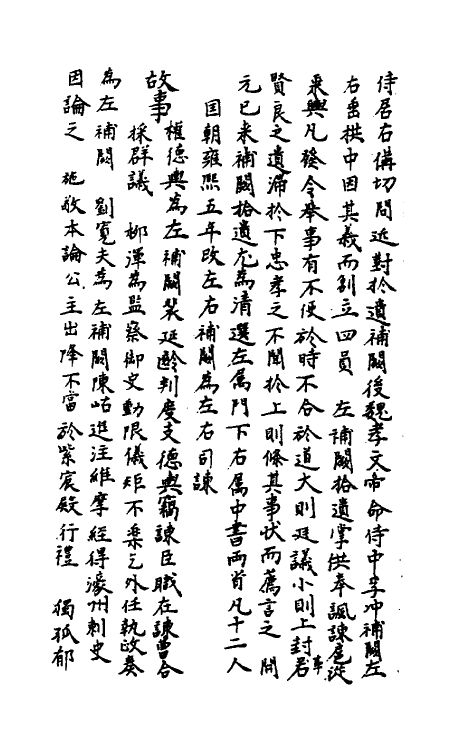 侍居右備切問近對拾遺補闕後魏孝文帝命侍中李冲補闕左
右垂拱中因其義而創立四員　左補闕拾遺掌供奉諷諫扈從
乘輿凡發令舉事有不便於時不合於道大則廷議小則上封若
賢良之遺滯於下忠孝之不聞於上則條其事狀而薦言之　開
元已來補闕拾遺尤為清選左属門下右属中書兩省凡十二人
国朝雍熙五年改左右補闕為左右司諫
故事　權德輿為左補闕裴延齡判度支德輿竊諫臣職在諫曹合
採群議　柳渾為監察御史動限儀矩不樂乞外任執政奏
為左補闕　劉寬夫為左補闕陳岵進注維摩經得濠州刺史
因論之　施敬本論公主出降不當於紫宸殿行禮　獨孤郁